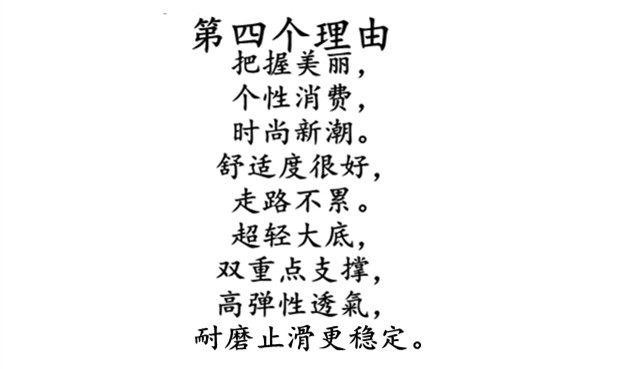 第四个理由
把握美丽，
个性消费，
时尚新潮。
舒适度很好，
走路不累。
超轻大底，
双重点支撑，
高弹性透氣，
耐磨止滑更稳定。